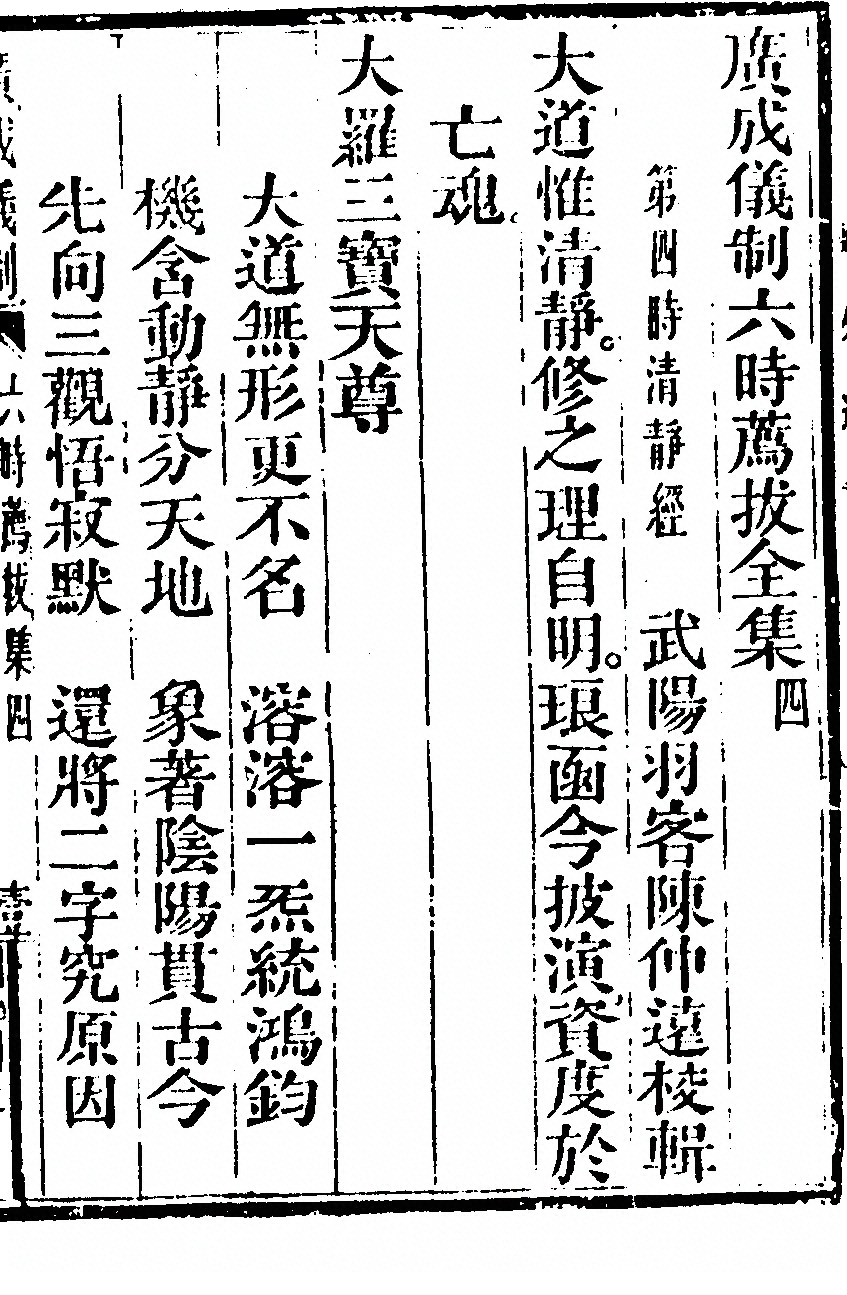 廣成儀制六時薦拔全集四
第四時清靜經　武陽羽客陳仲遠校輯
大道惟清靜。修之理自明。琅函今披演資度於
亡魂。
大羅三寶天尊
大道無形更不名　溶溶一炁統鴻鈞
機含動靜分天地　象著陰陽貫古今
先向三觀悟寂默　還將二字究原因
廣成儀制　六時薦拔集四